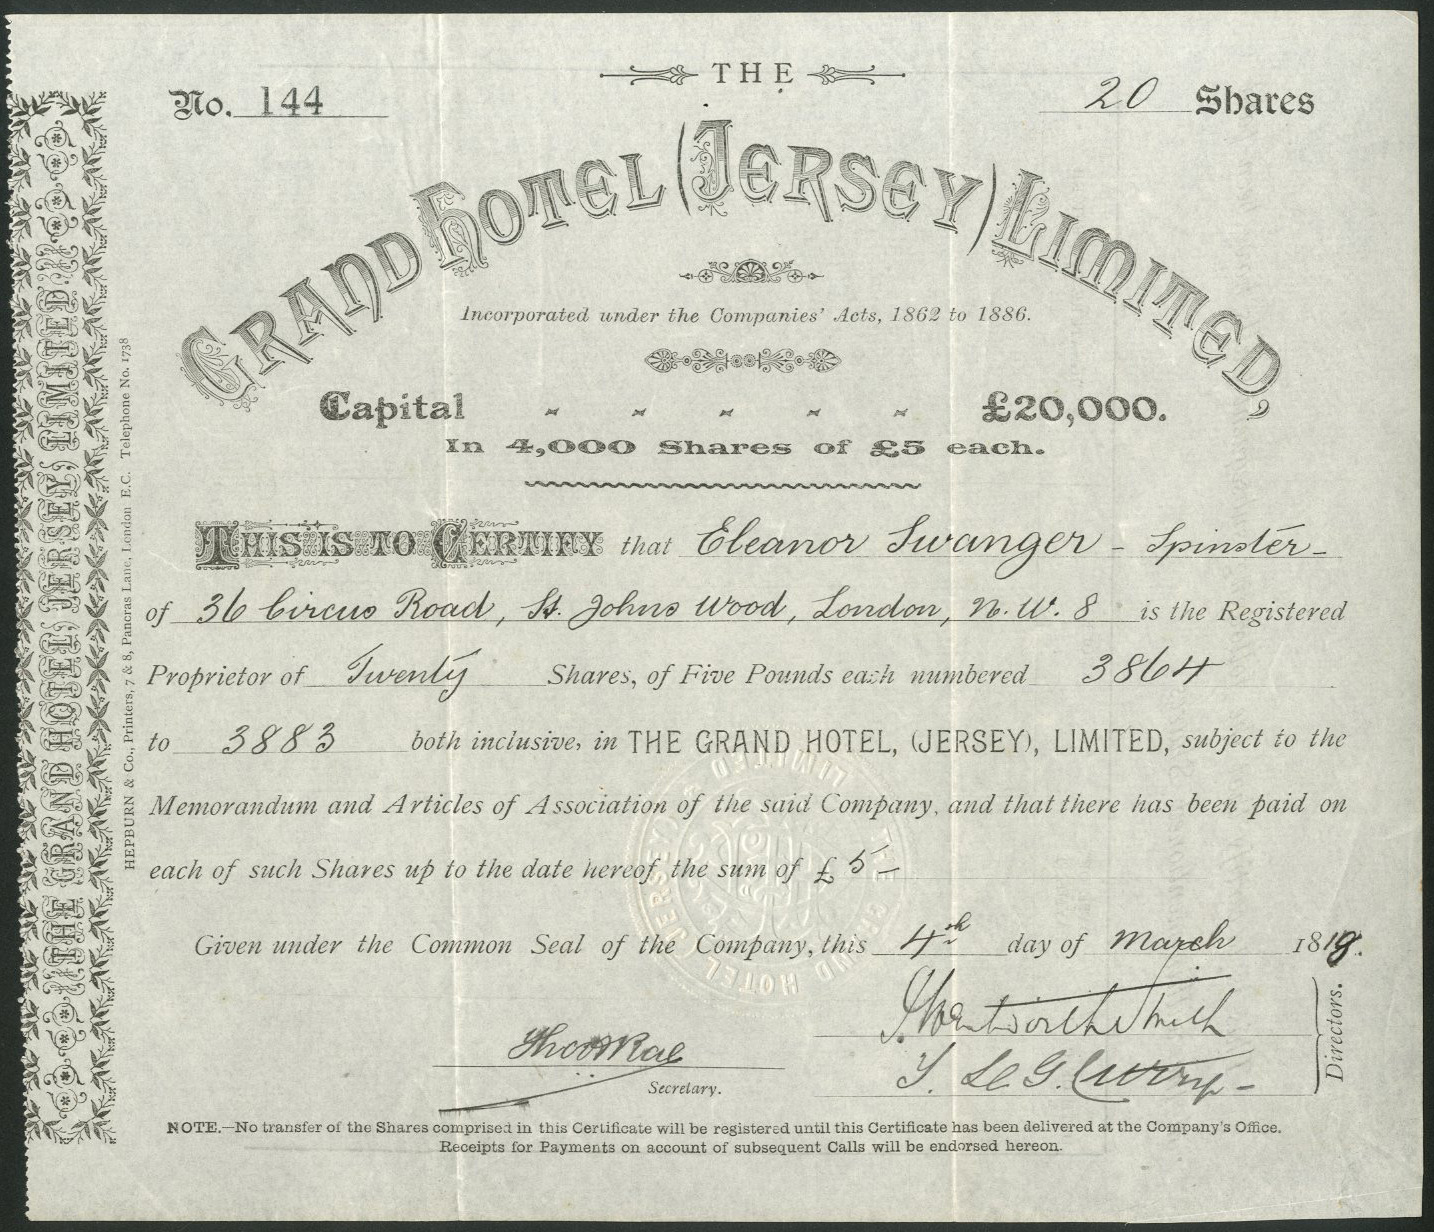 THE
No. 144
20 Shares
GRAND HOTEL (JERSEY) LIMITED,
Incorporated under the Companies' Acts, 1862 to 1886.
Capital " " " " " £20,000.
In 4,000 Shares of £5 each.
THIS IS TO CERTIFY that Eleanor Swanger - Spinster -
of 36 Circus Road, St. Johns Wood, London, N.W. 8 is the Registered
Proprietor of Twenty Shares, of Five Pounds each numbered 3864
to 3883 both inclusive, in THE GRAND HOTEL, (JERSEY), LIMITED, subject to the
Memorandum and Articles of Association of the said Company, and that there has been paid on
each of such Shares up to the date hereof the sum of £ 5 -
Given under the Common Seal of the Company, this 4th day of March 1818.
Wentworth Smith
Directors.
Secretary.
NOTE.—No transfer of the Shares comprised in this Certificate will be registered until this Certificate has been delivered at the Company's Office.
Receipts for Payments on account of subsequent Calls will be endorsed hereon.
THE GRAND HOTEL, JERSEY, LIMITED.
HEPBURN & Co., Printers, 7 & 8, Pancras Lane, London E.C. Telephone No. 1738
THE GRAND HOTEL (JERSEY) LIMITED